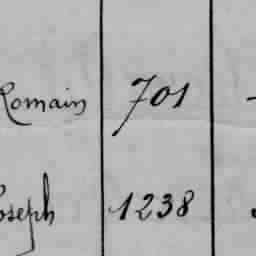 Romain 701
Joseph 1238